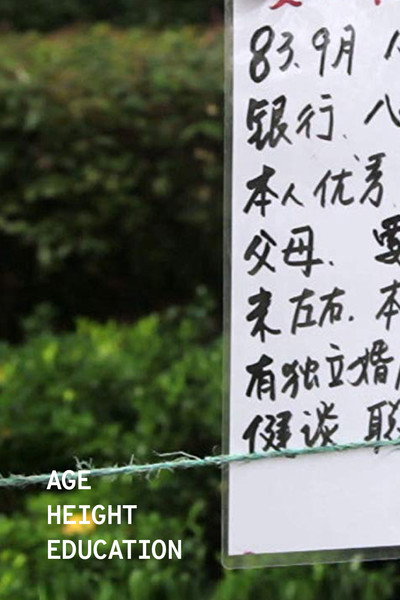 83.9月
银行、八
本人优秀
父母、要
米左右.本
有独立婚
健谈
AGE
HEIGHT
EDUCATION